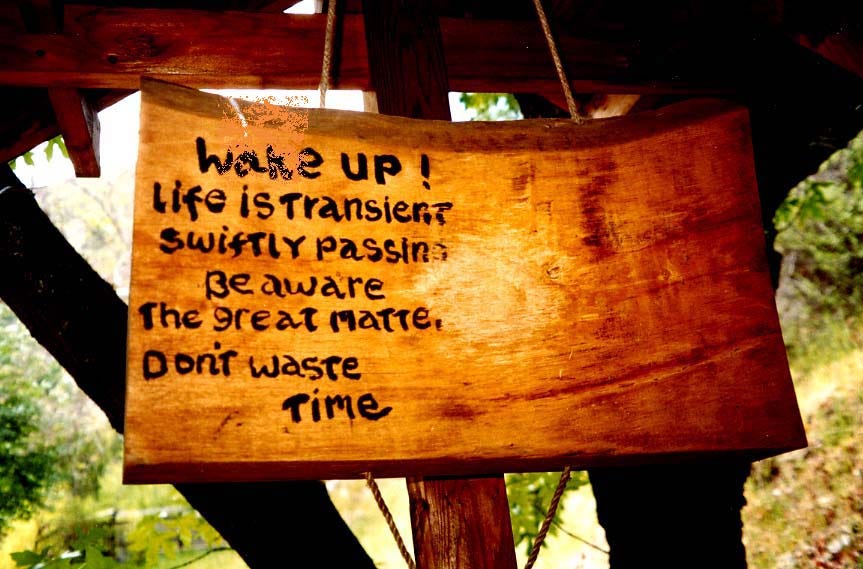 Wake UP!
Life is Transient
Swiftly passing
Be aware
The great matter
Don't waste
Time